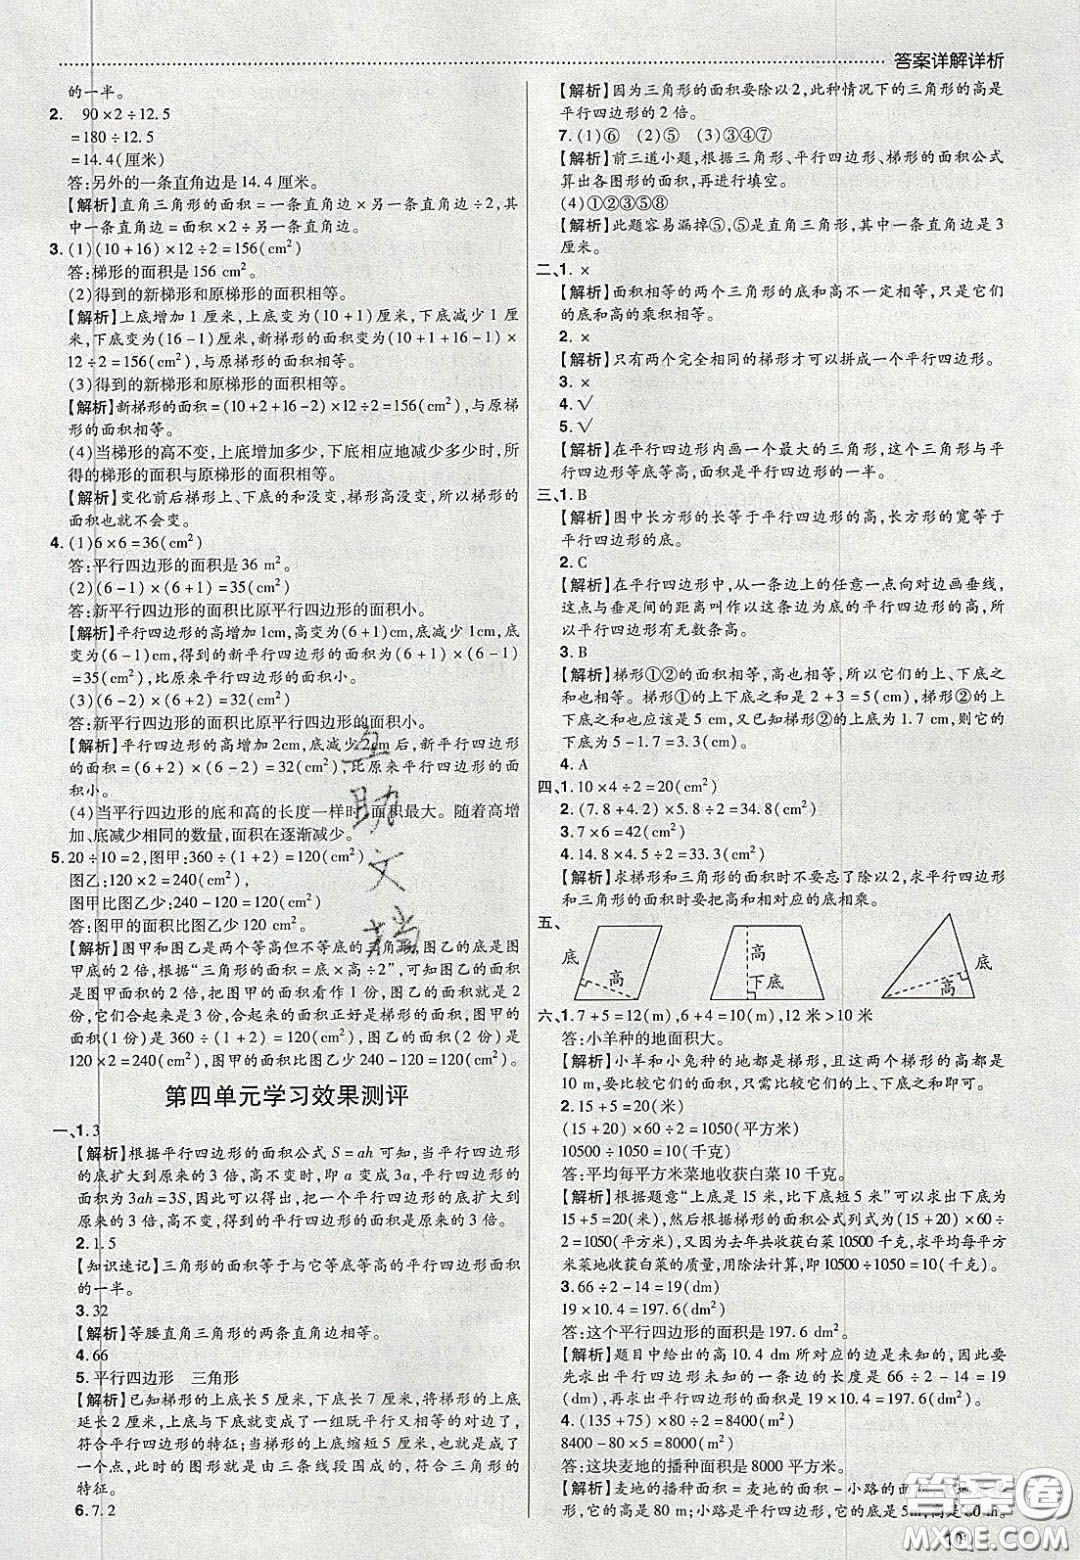 答案详解详析
的一半。
2. 90×2÷12.5
=180÷12.5
=14.4(厘米)
答:另外的一条直角边是14.4厘米。
【解析】直角三角形的面积=一条直角边×另一条直角边÷2,其
中一条直角边=面积×2÷另一条直角边。
3. (1)(10+16)×12÷2=156(cm²)
答:梯形的面积是156 cm²。
(2)得到的新梯形和原梯形的面积相等。
【解析】上底增加1厘米,上底变为(10+1)厘米,下底减少1厘
米,下底变为(16-1)厘米,新梯形的面积变为(10+1+16-1)×
12÷2=156(cm²),与原梯形的面积相等。
(3)得到的新梯形和原梯形的面积相等。
【解析】新梯形的面积=(10+2+16-2)×12÷2=156(cm²),与原梯
形的面积相等。
(4)当梯形的高不变,上底增加多少,下底相应地减少多少时,所
得的梯形的面积与原梯形的面积相等。
【解析】变化前后梯形上、下底的和没变,梯形高没变,所以梯形的
面积也就不会变。
4. (1)6×6=36(cm²)
答:平行四边形的面积是36 m²。
(2)(6-1)×(6+1)=35(cm²)
答:新平行四边形的面积比原平行四边形的面积小。
【解析】平行四边形的高增加1cm,高变为(6+1)cm,底减少1cm,底
变为(6-1)cm,得到的新平行四边形的面积变为(6+1)×(6-1)
=35(cm²),比原来平行四边形的面积小。
(3)(6-2)×(6+2)=32(cm²)
答:新平行四边形的面积比原平行四边形的面积小。
【解析】平行四边形的高增加2cm,底减少2cm后,新平行四边形
的面积=(6+2)×(6-2)=32(cm²),比原来平行四边形的面
积小。
(4)当平行四边形的底和高的长度一样时,面积最大。随着高增
加、底减少相同的数量,面积在逐渐减少。
5. 20÷10=2,图甲:360÷(1+2)=120(cm²)
图乙:120×2=240(cm²),
图甲比图乙少:240-120=120(cm²)
答:图甲的面积比图乙少120 cm²。
【解析】图甲和图乙是两个等高但不等底的三角形,图乙的底是图
甲底的2倍,根据“三角形的面积=底×高÷2”,可知图乙的面积
是图甲面积的2倍,把图甲的面积看作1份,图乙的面积就是2
份,它们合起来是3份,合起来的面积正好是梯形的面积,图甲的面
积(1份)是360÷(1+2)=120(cm²),图乙的面积(2份)是
120×2=240(cm²),图甲的面积比图乙少240-120=120(cm²)。
第四单元学习效果测评
一、1. 3
【解析】根据平行四边形的面积公式S=ah可知,当平行四边形
的底扩大到原来的3倍,高不变时,即a变成3a,平行四边形的
面积为3ah=3S,因此可以得出,把一个平行四边形的底扩大到
原来的3倍,高不变,得到的平行四边形的面积是原来的3倍。
2. 1.5
【知识速记】三角形的面积等于与它等底等高的平行四边形面积
的一半。
3. 32
【解析】等腰直角三角形的两条直角边相等。
4. 66
5. 平行四边形 三角形
【解析】已知梯形的上底长5厘米,下底长7厘米,将梯形的上底
延长2厘米,上底与下底就变成了一组既平行又相等的对边了,
符合平行四边形的特征;当梯形的上底缩短5厘米,上底就变成
了一个点,此时的图形就是由三条线段围成的,符合三角形的
特征。
6. 7.2
【解析】因为三角形的面积要除以2,此种情况下的三角形的高是
平行四边形的2倍。
7. (1)⑥ (2)⑤ (3)③④⑦
【解析】前三道小题,根据三角形、平行四边形、梯形的面积公式
算出各图形的面积,再进行填空。
(4)①②③⑤⑧
【解析】此题容易漏掉⑤,⑤是直角三角形,所作的直角边是3
厘米。
二、1. ×
【解析】面积相等的两个三角形的底和高不一定相等,只是它们
的底和高的乘积相等。
2. ×
【解析】只有两个完全相同的梯形才可以拼成一个平行四边形。
3. ×
4. √
5. √
【解析】在平行四边形内画一个最大的三角形,这个三角形与平
行四边形等底等高,面积是平行四边形的一半。
三、1. B
【解析】图中长方形的长等于平行四边形的高,长方形的宽等于
平行四边形的底。
2. C
【解析】在平行四边形中,从一条边上的任意一点向对边画垂线,
这点与垂足间的距离叫作以这条边为底的平行四边形的高,所
以平行四边形有无数条高。
3. B
【解析】梯形①②的面积相等,高也相等,所以它们的上、下底之
和相等。梯形①的上下底之和是2+3=5(cm),梯形②的上下
底之和也应该是5 cm,又已知梯形②的上底为1.7 cm,则它的
下底为5-1.7=3.3(cm)。
4. A
四、1. 10×4÷2=20(cm²)
2. (7.8+4.2)×5.8÷2=34.8(cm²)
3. 7×6=42(cm²)
4. 14.8×4.5÷2=33.3(cm²)
【解析】求梯形和三角形的面积时不要忘了除以2,求平行四边形
和三角形的面积时要把高和相对应的底相乘。
五、
底 高 高 下底 高 底
六、1. 7+5=12(m),6+4=10(m),12米>10米
答:小羊种的地面积大。
【解析】小羊和小兔种的地都是梯形,且这两个梯形的高都是
10 m,要比较梯形的面积,只需比较它们上、下底之和即可。
2. 15+5=20(米)
(15+20)×60÷2=1050(平方米)
10500÷1050=10(千克)
答:平均每平方米菜地收获白菜10千克。
【解析】根据题意“上底是15米,比下底短5米”可以求出下底为
15+5=20(米),然后根据梯形的面积公式列式为(15+20)×60÷
2=1050(平方米),又因为去年共收获白菜10500千克,求平均每平方
米菜地收获白菜的质量,用除法计算,即10500÷1050=10(千克)。
3. 66÷2-14=19(dm)
19×10.4=197.6(dm²)
答:这个平行四边形的面积是197.6 dm²。
【解析】题目中给出的高10.4 dm所对应的边是未知的,因此要
先求出平行四边形未知的一条边的长度是66÷2-14=19
(dm),再求出平行四边形的面积是19×10.4=197.6(dm²)。
4. (135+75)×80÷2=8400(m²)
8400-80×5=8000(m²)
答:这块麦地的播种面积是8000平方米。
【解析】麦地的播种面积=麦地的面积-小路的面积
形,它的高是80 m;小路是平行四边形,它的底是5m,高是80 m。
互助文档
答案圈
MXQE.COM